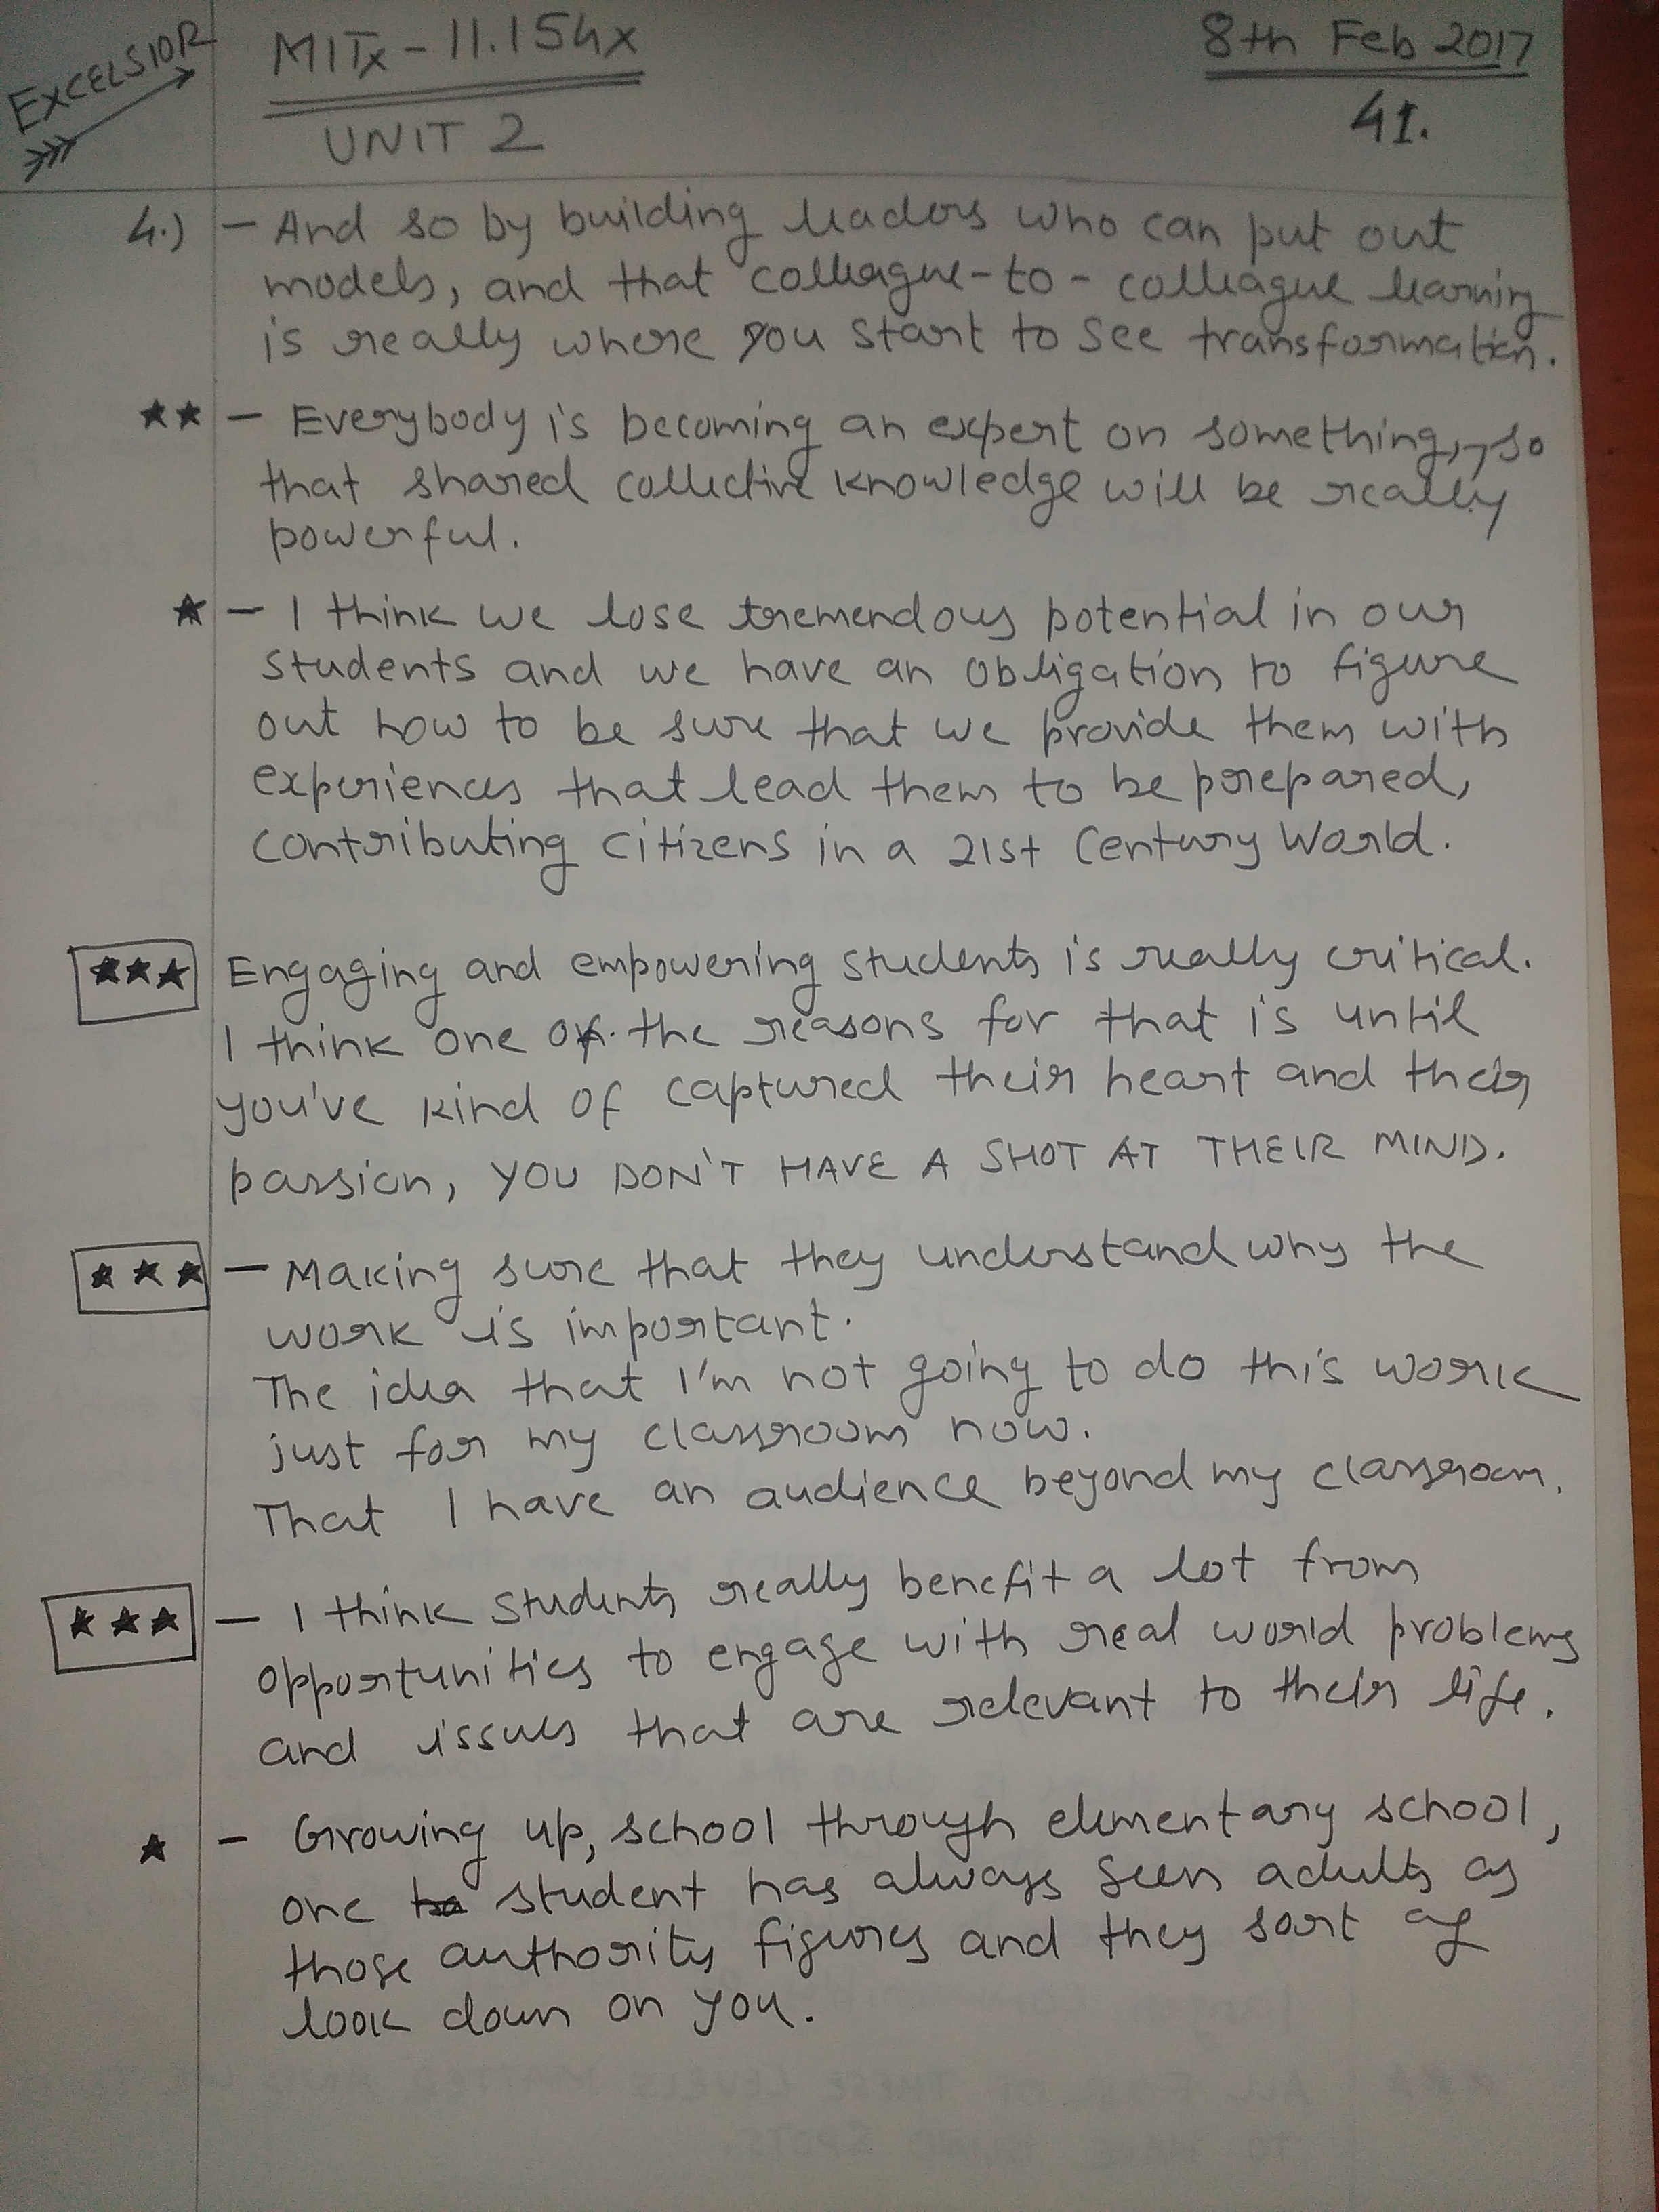 EXCELSIOR
MITx - 11.154x
UNIT 2
8th Feb 2017
41.
4.) - And so by building leaders who can put out
models, and that colleague-to-colleague learning
is really where you start to see transformation.
★★ - Everybody is becoming an expert on something, so
that shared collective knowledge will be really
powerful.
★ - I think we lose tremendous potential in our
students and we have an obligation to figure
out how to be sure that we provide them with
experiences that lead them to be prepared,
contributing citizens in a 21st Century World.
★★★ Engaging and empowering students is really critical.
I think one of the reasons for that is until
you've kind of captured their heart and their
passion, YOU DON'T HAVE A SHOT AT THEIR MIND.
★★★ - Making sure that they understand why the
work is important.
The idea that I'm not going to do this work
just for my classroom now.
That I have an audience beyond my classroom.
★★★ - I think students really benefit a lot from
opportunities to engage with real world problems
and issues that are relevant to their life.
★ - Growing up, school through elementary school,
one student has always seen adults as
those authority figures and they sort of
look down on you.